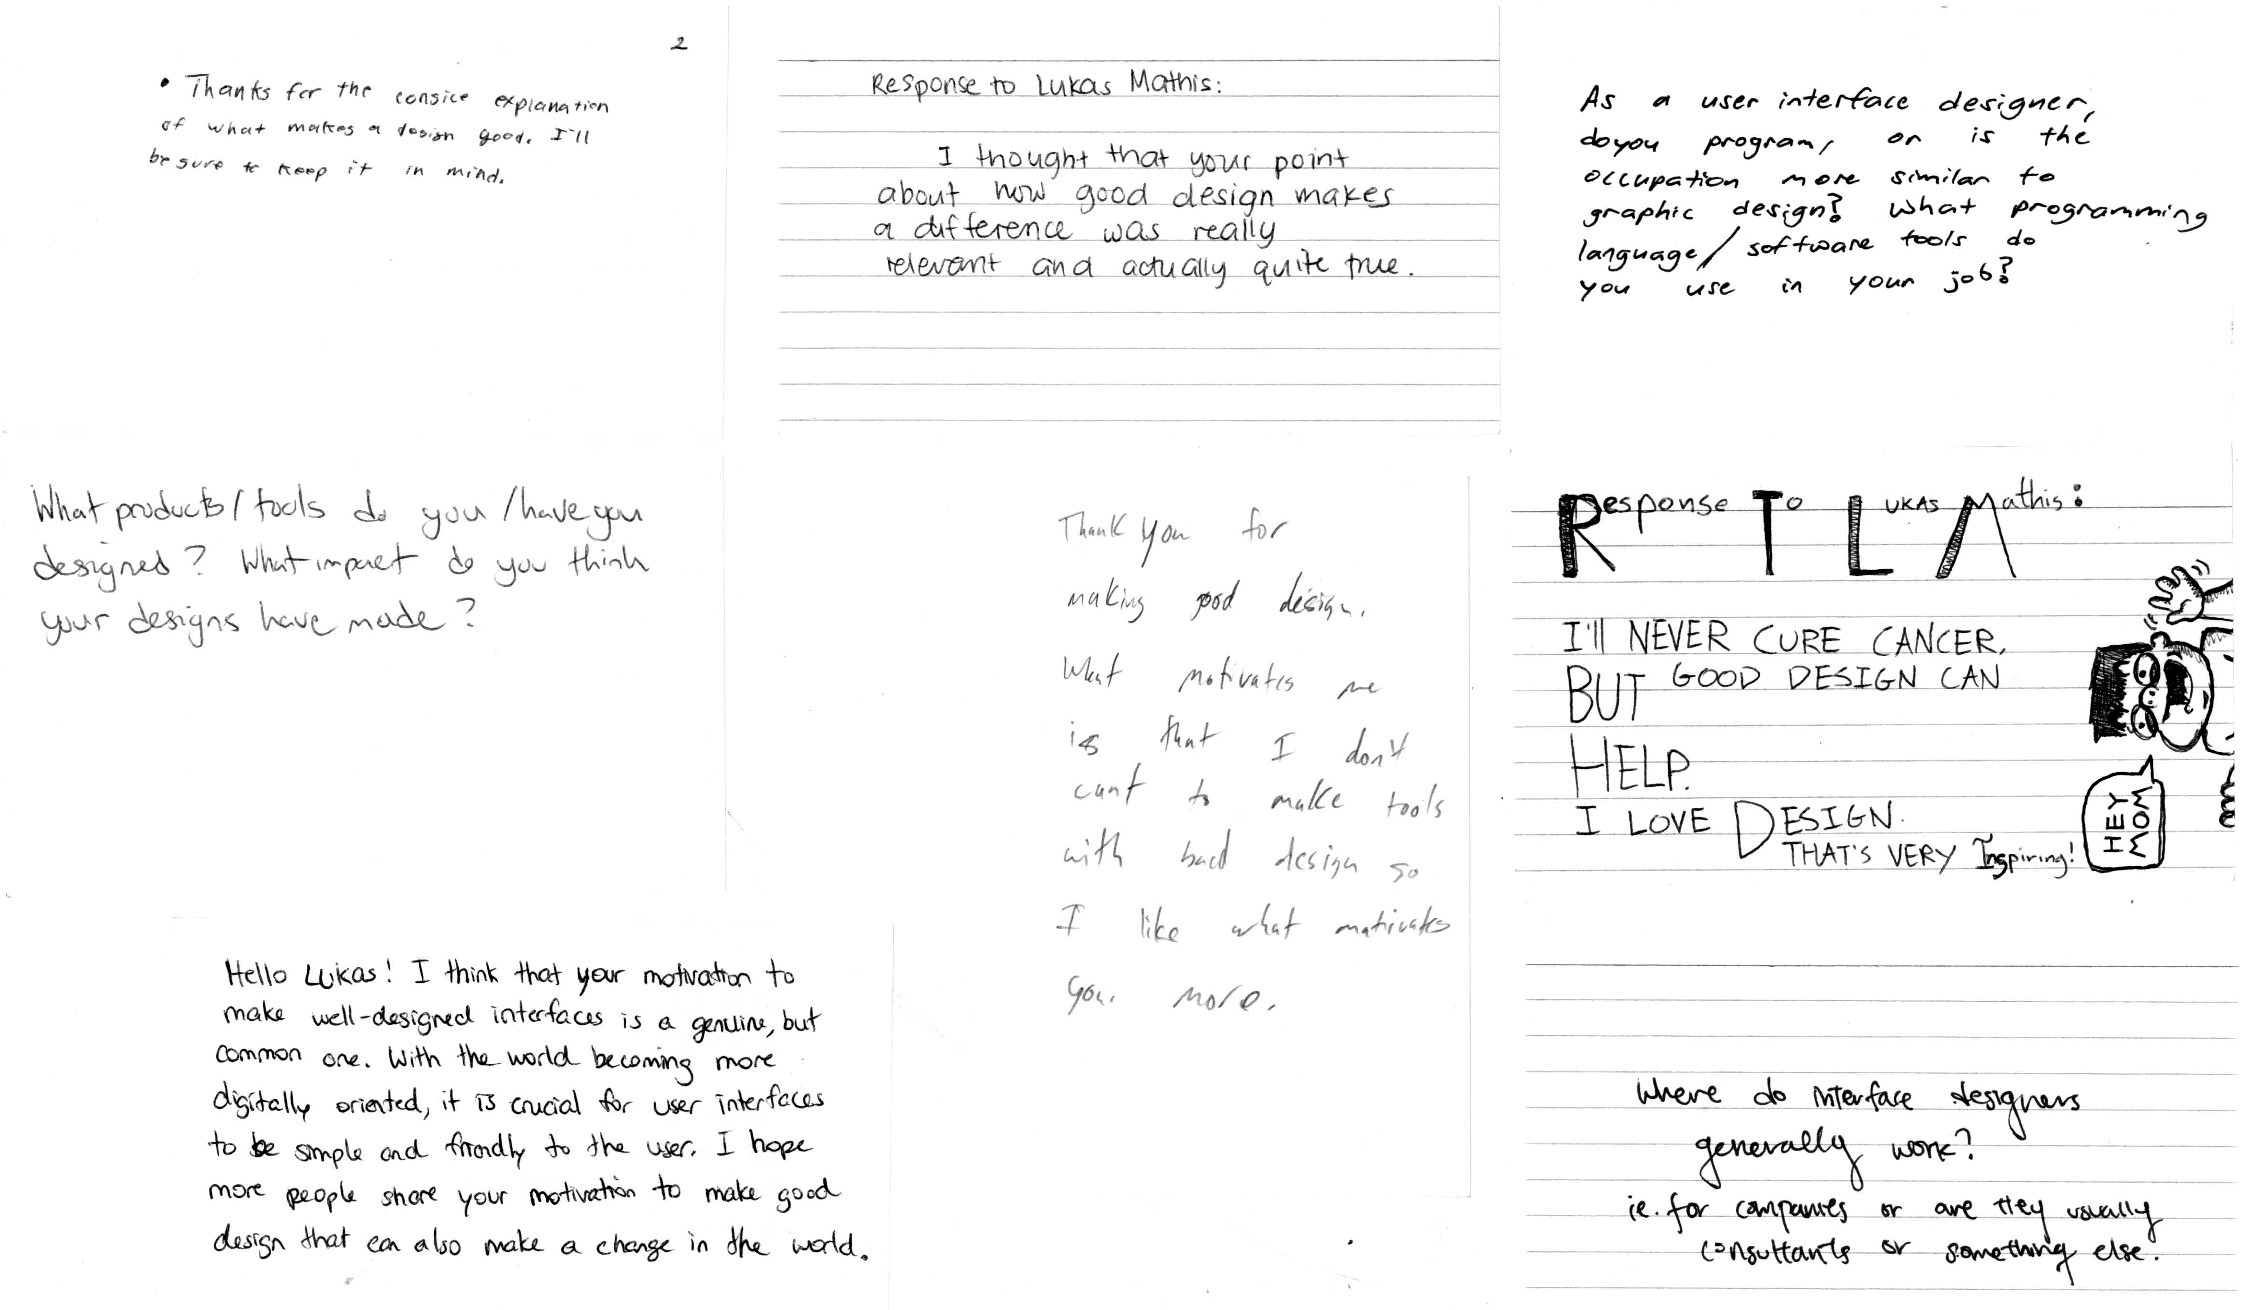 2
• Thanks for the consice explanation
of what makes a design good. I'll
be sure to keep it in mind.
Response to Lukas Mathis:
I thought that your point
about how good design makes
a difference was really
relevant and actually quite true.
As a user interface designer,
do you program, or is the
occupation more similar to
graphic design? What programming
language/software tools do
you use in your job?
What products/tools do you/have you
designed? What impact do you think
your designs have made?
Thank you for
making good design.
What motivates me
is that I don't
want to make tools
with bad design so
I like what motivates
you. more.
Response To Lukas Mathis:
I'll NEVER CURE CANCER,
BUT GOOD DESIGN CAN
HELP.
I LOVE DESIGN.
THAT'S VERY Inspiring!
HEY
MOM
Hello Lukas! I think that your motivation to
make well-designed interfaces is a genuine, but
common one. With the world becoming more
digitally oriented, it is crucial for user interfaces
to be simple and friendly to the user. I hope
more people share your motivation to make good
design that can also make a change in the world.
Where do interface designers
generally work?
ie. for companies or are they usually
consultants or something else.